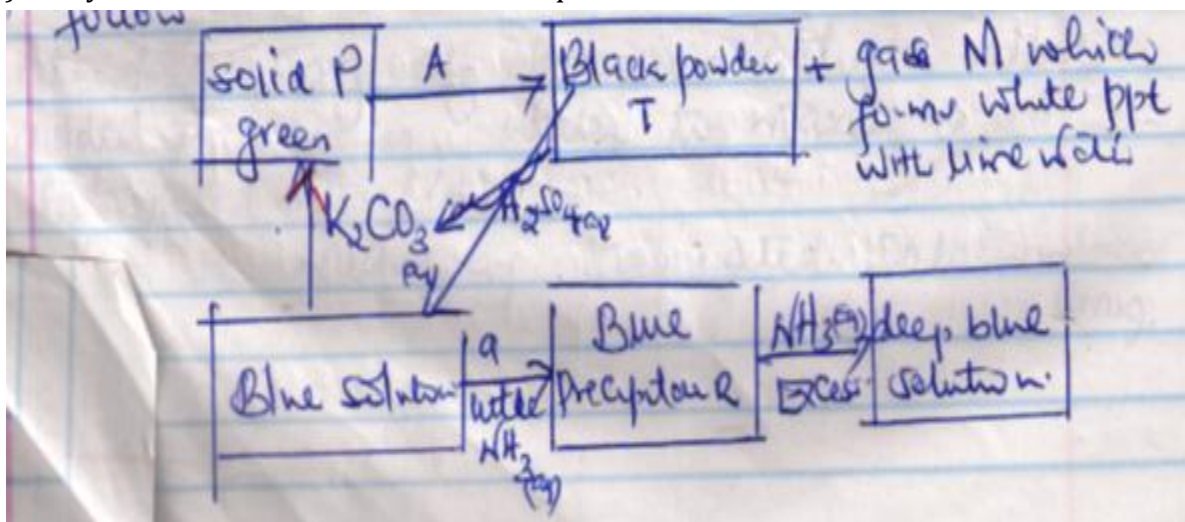 follow
solid P
green
A
Black powder
T
+ gas M which
forms white ppt
with lime
K2CO3
aq
H2SO4 aq
Blue solution
a
little
NH3
(aq)
Blue
Precipitate R
NH3(aq)
Excess
deep blue
solution.